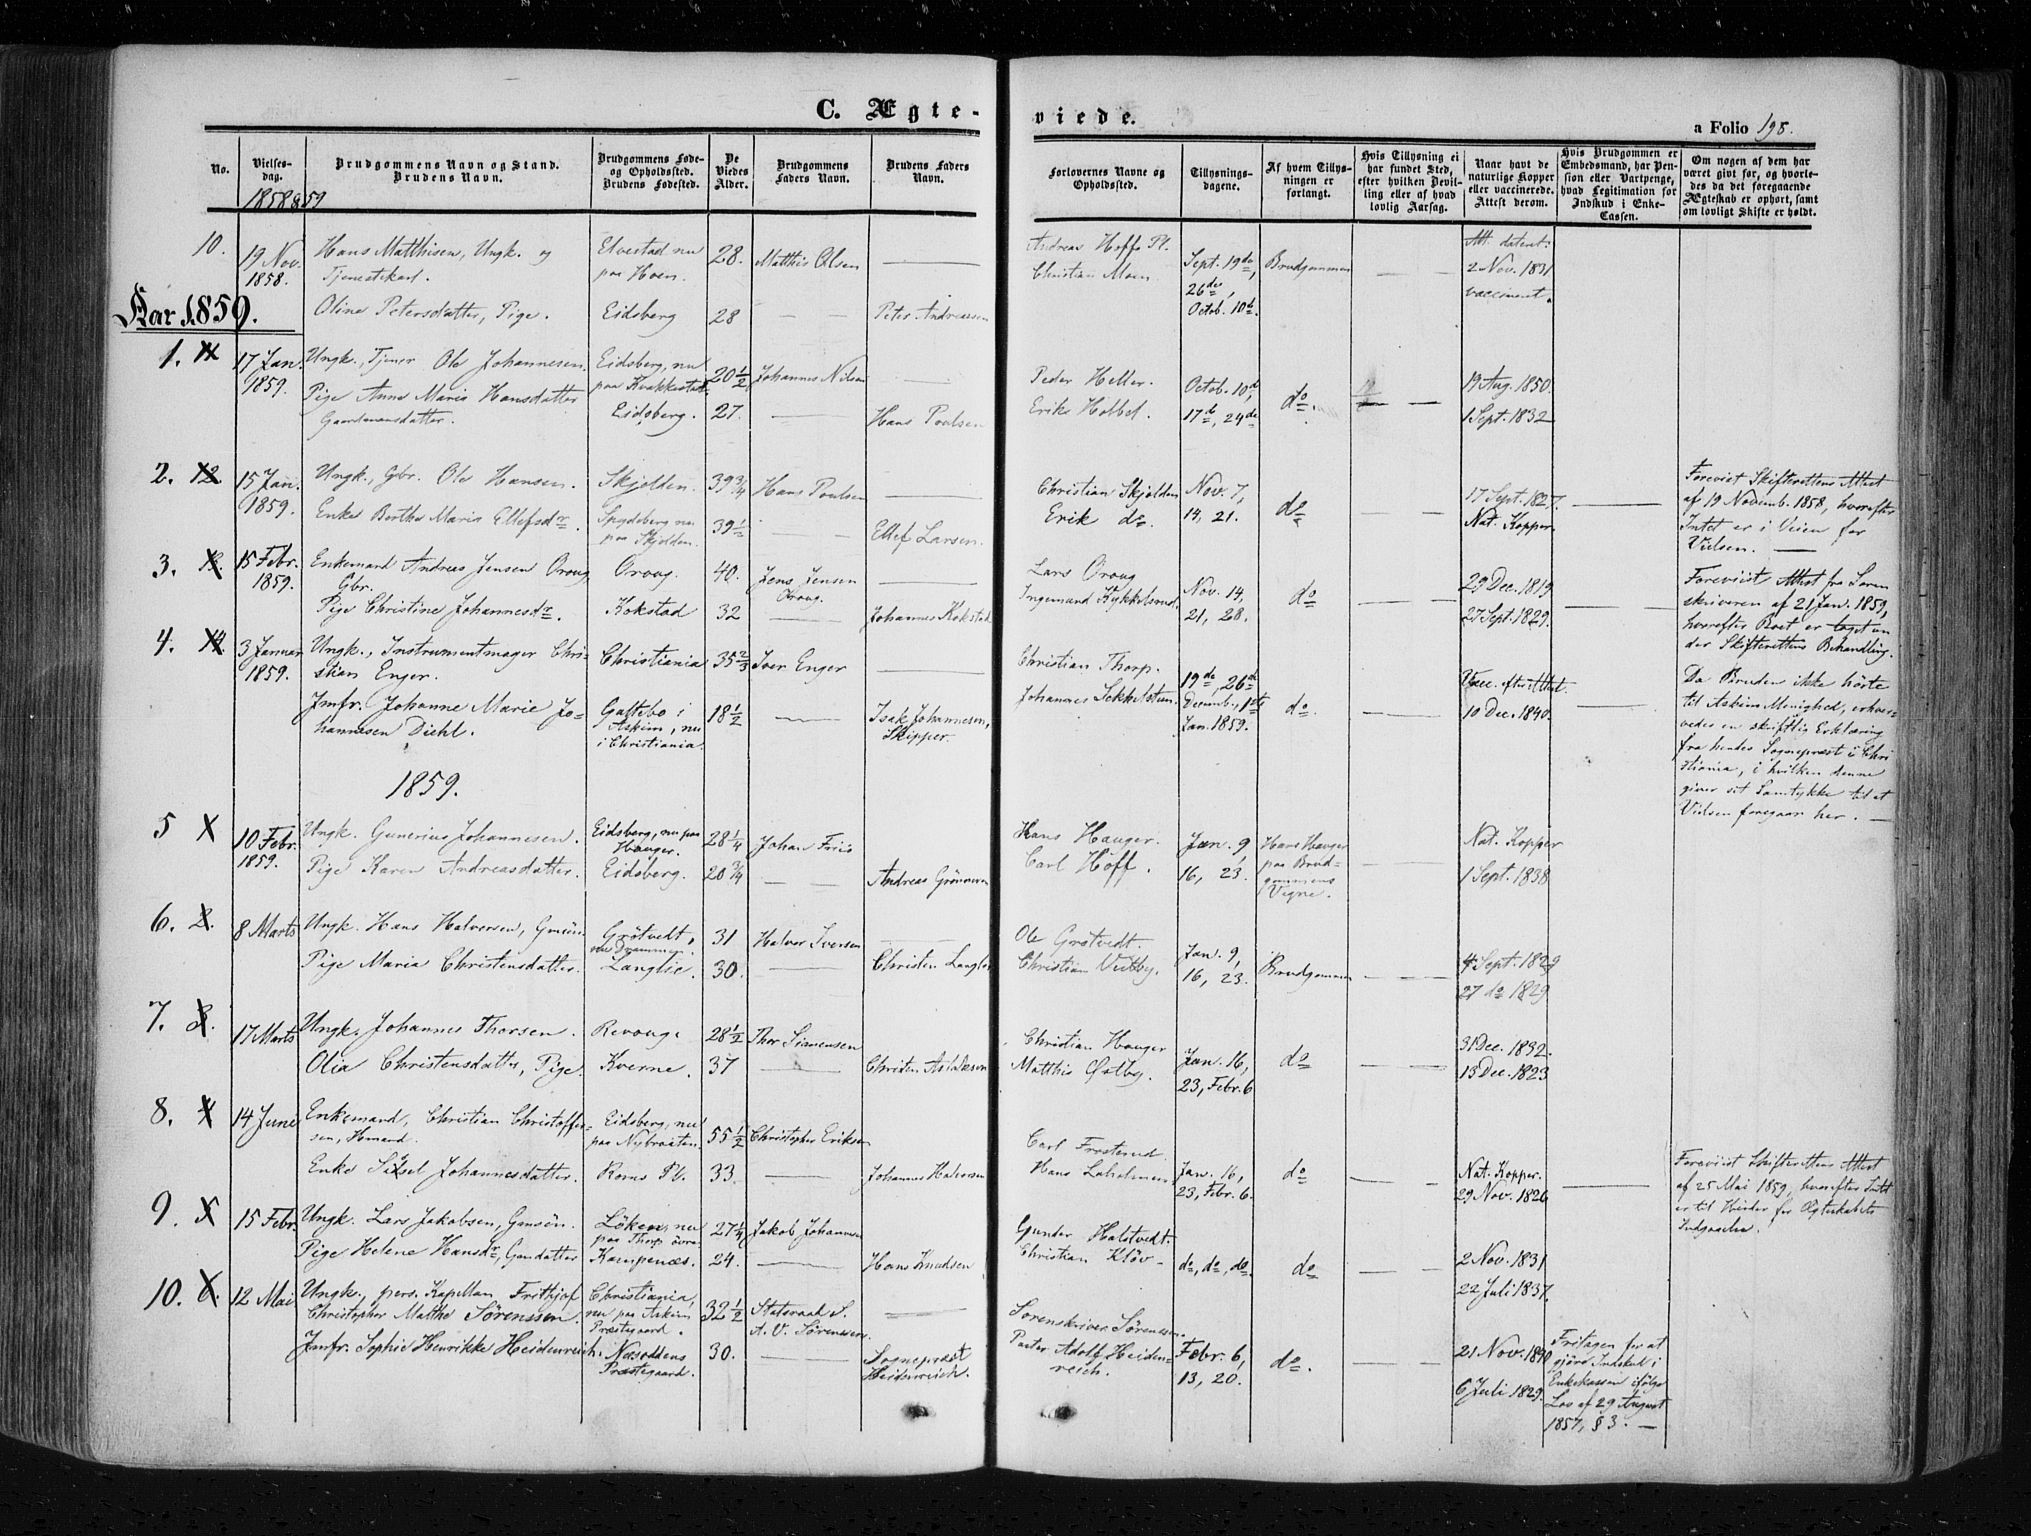 C. Ægte-
viede.
a Folio 198.
No.
Vielses-
dag.
1858 & 59
Brudgommens Navn og Stand.
Brudens Navn.
Brudgommens Føde-
og Opholdssted.
Brudens Fødested.
De
Viedes
Alder.
Brudgommens
Faders Navn.
Brudens Faders
Navn.
Forlovernes Navne og
Opholdssted.
Tillysnings-
dagene.
Af hvem Tillys-
ningen er
forlangt.
Hvis Tillysning ei
har fundet Sted,
efter hvilken Bevil-
ling eller af hvad
lovlig Aarsag.
Naar havt de
naturlige Kopper
eller vaccinerede.
Attest derom.
Hvis Brudgommen er
Embedsmand, har Pen-
sion eller Vartpenge,
hvad Legitimation for
Indskud i Enke-
Cassen.
Om nogen af dem har
været givt før, og hvorle-
des da det foregaaende
Ægteskab er ophørt, samt
om lovligt Skifte er holdt.
10.
19 Nov.
1858.
Hans Matthisen, Ungk. og
Tjenestkarl.
Oline Petersdatter, Pige.
Elvestad nu
paa Hoen.
Eidsberg
28.
28
Matthis Olsen
Peter Andreassen
Andreas Hoff Pl.
Christian Moen
Sept. 19de,
26de,
Octob. 10d.
Brudgommen
Att. dateret.
2 Nov. 1831
vaccineret.
Aar 1859.
1. 11
17 Jan.
1859.
Ungk., Tjener Ole Johannesen.
Pige Anne Maria Hansdatter
Gaardmansdatter.
Eidsberg, nu
paa Kvakkestad.
Eidsberg.
20 1/2
27.
Johannes Nilsen
Hans Poulsen
Peder Heller.
Eriks Holbel.
Octob. 10d,
17d, 24de
do.
19 Aug. 1850.
1 Sept. 1832
2. 12
15 Jan.
1859.
Ungk., Gbr. Ole Hansen.
Enke Berthe Maria Ellefsdr.
Skjolden.
Spydeberg nu
paa Skjolden.
39 3/4
39 1/2
Hans Poulsen
Ellef Larsen.
Christian Skjolden
Erik do.
Nov. 7,
14, 21.
do
17 Sept. 1827.
Nat. Kopper
Foreviist Skifterettens Attest
af 19 Novemb. 1858, hvorefter
Intet er i Veien for
Vielsen.
3. 13.
15 Febr.
1859.
Enkemand Andreas Jensen Oroug,
Gbr.
Pige Christine Johannesdr.
Oroug.
Kokstad
40.
32
Jens Jensen
Oroug.
Johannes Kokstad
Lars Oroug
Ingemand Kykkelsrud.
Nov. 14,
21, 28.
do
29 Dec. 1819
27 Sept. 1829.
Foreviist Attest fra Soren
skriveren af 21 Jan. 1859,
hvorefter Boet er taget un
der Skifterettens Behandling.
4. 14.
3 Januar
1859.
Ungk., Instrumentmager Chri-
stian Enger.
Jmfr. Johanne Marie Jo-
hannesen Diehl.
Christiania
Galtebo i
Askim, nu
i Christiania.
35 2/3
18 1/2
Iver Enger
Isak Johannesen,
Skipper.
Christian Thorp.
Johannes Sekkelsten.
19de, 26de
Decemb., 1ste
Jan. 1859.
do.
Vacc. efter Attest.
10 Dec. 1840.
Da Bruden ikke hörte
til Askims Menighed, erhver-
vedes en skriftlig Erklæring
fra hendes Sognepræst i Chri
stiania, i hvilken denne
giver sit Samtykke til at
Vielsen foregaar her.
1859.
5 X
10 Febr.
1859.
Ungk. Gunerius Johannesen.
Pige Karen Andreasdatter.
Eidsberg, nu paa
Hauger.
Eidsberg.
28 1/4
20 3/4
Johan Friis
Andreas Grönneren
Hans Hauger.
Carl Hoff.
Jan. 9,
16, 23.
Hans Hauger
paa Brud-
gommens
Vegne.
Nat. Kopper
1 Sept. 1838
6. 2.
8 Marts
Ungk. Hans Halversen, Gmsön
Pige Maria Christensdatter.
Grötvedt,
nu Drammen.
Langlie.
31
30.
Halvor Iversen
Christen Langlie
Ole Grötvedt.
Christian Vestby.
Jan. 9,
16, 23.
Brudgommen
4 Sept. 1829
27 do 1829.
7. 3.
17 Marts
Ungk. Johannes Thorsen.
Olia Christensdatter, Pige.
Revoug.
Kverne.
28 1/2
37
Thor Simensen
Christen Aslaksen
Christian Hauger
Matthis Östby.
Jan. 16,
23, Febr. 6
do
31 Dec. 1832.
13 Dec. 1823
8. 4
14 Juni
Enkemand, Christian Christoffer-
sen, Hmand.
Enke Sissel Johannesdatter.
Eidsberg, nu
paa Nybraaten
Roms Pl.
55 1/2
33.
Christopher Eriksen
Johannes Halvorsen
Carl Frosterud.
Hans Laholmen
Jan. 16,
23, Febr. 6.
do
Nat. Kopper.
29 Nov. 1826
Foreviist Skifterettens Attest
af 25 Mai 1859, hvorefter Intet
er til Hinder for Ægteskabets
Indgaaelse.
9. 5
15 Febr.
Ungk. Lars Jakobsen, Gmsön.
Pige Helene Hansdr., Gmdatter
Löken, nu
paa Thorp övre
Kampenæs.
27 1/4
24.
Jakob Johannesen
Hans Knudsen
Gunder Halstvedt.
Christian Klöv
do, do, do.
do
2 Nov. 1831
22 Juli 1837.
10. 6.
12 Mai
Ungk., pers. Kapellan Frithjof
Christopher Malthe Sörenssen.
Jmfr. Sophie Henrikke Heidenreich.
Christiania,
nu paa Askim
Præstegaard.
Næsoddens
Præstegaard.
32 1/2
30.
Statsraad S.
A. V. Sörenssen.
Sognepræst
Heidenreich.
Sorenskriver Sörenssen.
Pastor Adolf Heiden-
reich.
Febr. 6,
13, 20.
do.
21 Nov. 1840
6 Juli 1829.
Fritagen for at
gjöre Indskud i
Enkekassen ifölge
Lov af 29 August
1857, § 3.